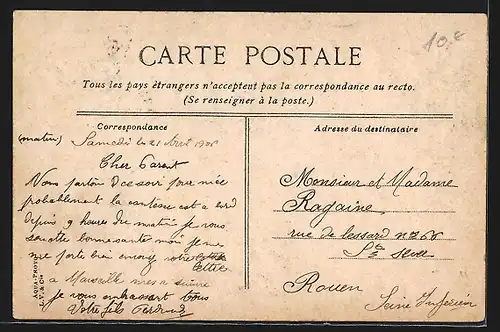 10,€
CARTE POSTALE
Tous les pays étrangers n'acceptent pas la correspondance au recto.
(Se renseigner à la poste.)
Correspondance
(matin) Samedi le 21 Avril 1906
Cher Parent
Nous partons ce soir pour
probablement la est a bord
depuis 9 heures du matin je vous
bonne santé moi je me
porte bien envoyez votre lettre
a Marseille a suivre
je vous embrassant tous
Votre fils
Adresse du destinataire
Monsieur et Madame
Ragaine
rue de lessard n° 68
St Sever
Rouen
Seine Inferieure
AQUA-PHOTO
L. V. & Cie